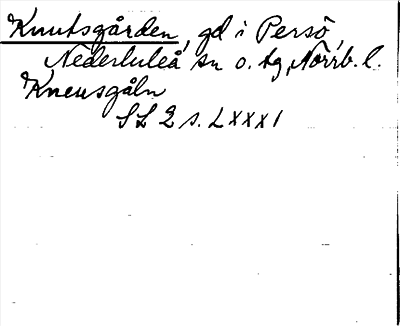 Knutsgården, gd i Persö,
Nederluleå sn o. tg, Norrb. l.
Kneusgåln
SL 2 s. LXXXI